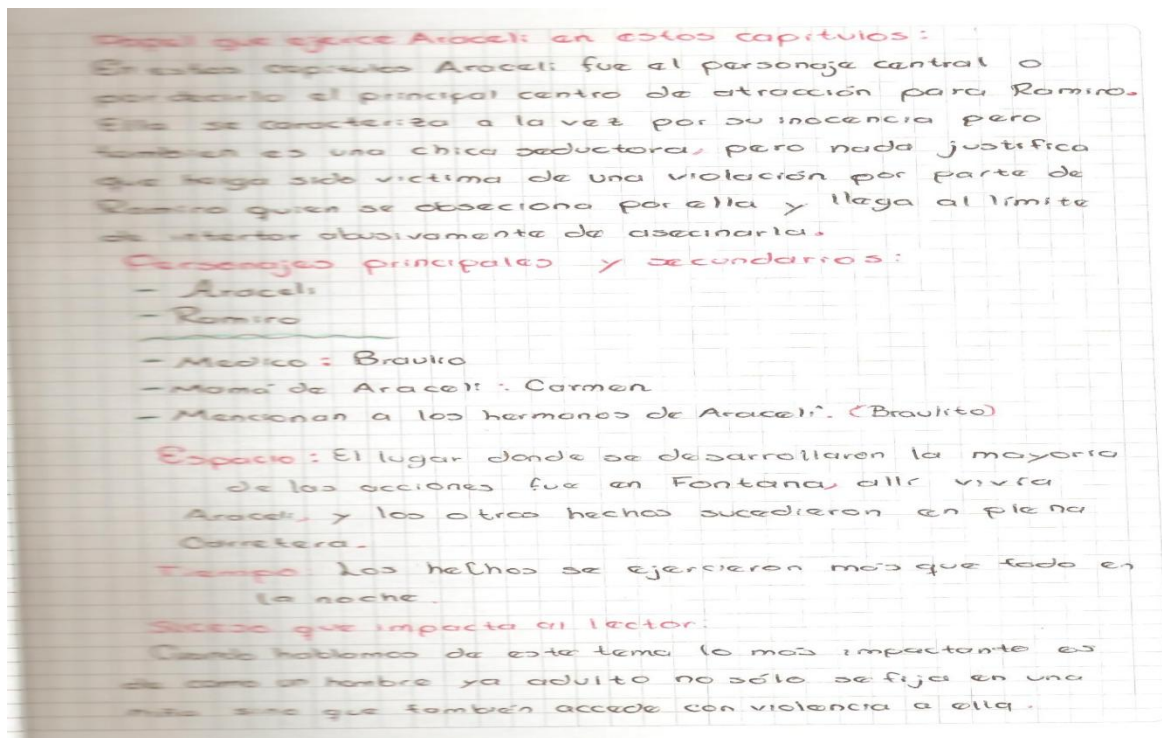 Papel que ejerce Araceli en estos capítulos:
En estos capítulos Araceli fue el personaje central o
por decirlo el principal centro de atracción para Ramiro.
Ella se caracteriza a la vez por su inocencia pero
tambien es una chica seductora, pero nada justifica
que haiga sido victima de una violación por parte de
Ramiro quien se obseciona por ella y llega al límite
de intertar abusivamente de asecinarla.
Personajes principales y secundarios:
- Araceli
- Ramiro
- Medico: Braulio
- Mamá de Araceli: Carmen
- Mencionan a los hermanos de Araceli. (Braulito)
Espacio: El lugar donde se desarrollaron la mayoria
de las acciones fue en Fontana, allí vivía
Araceli, y los otros hechos sucedieron en plena
Carretera.
Tiempo: Los hechos se ejercieron más que todo en
la noche.
Suceso que impacta al lector:
Cuando hablamos de este tema lo más impactante es
de como un hombre ya adulto no sólo se fija en una
niña sino que también accede con violencia a ella.